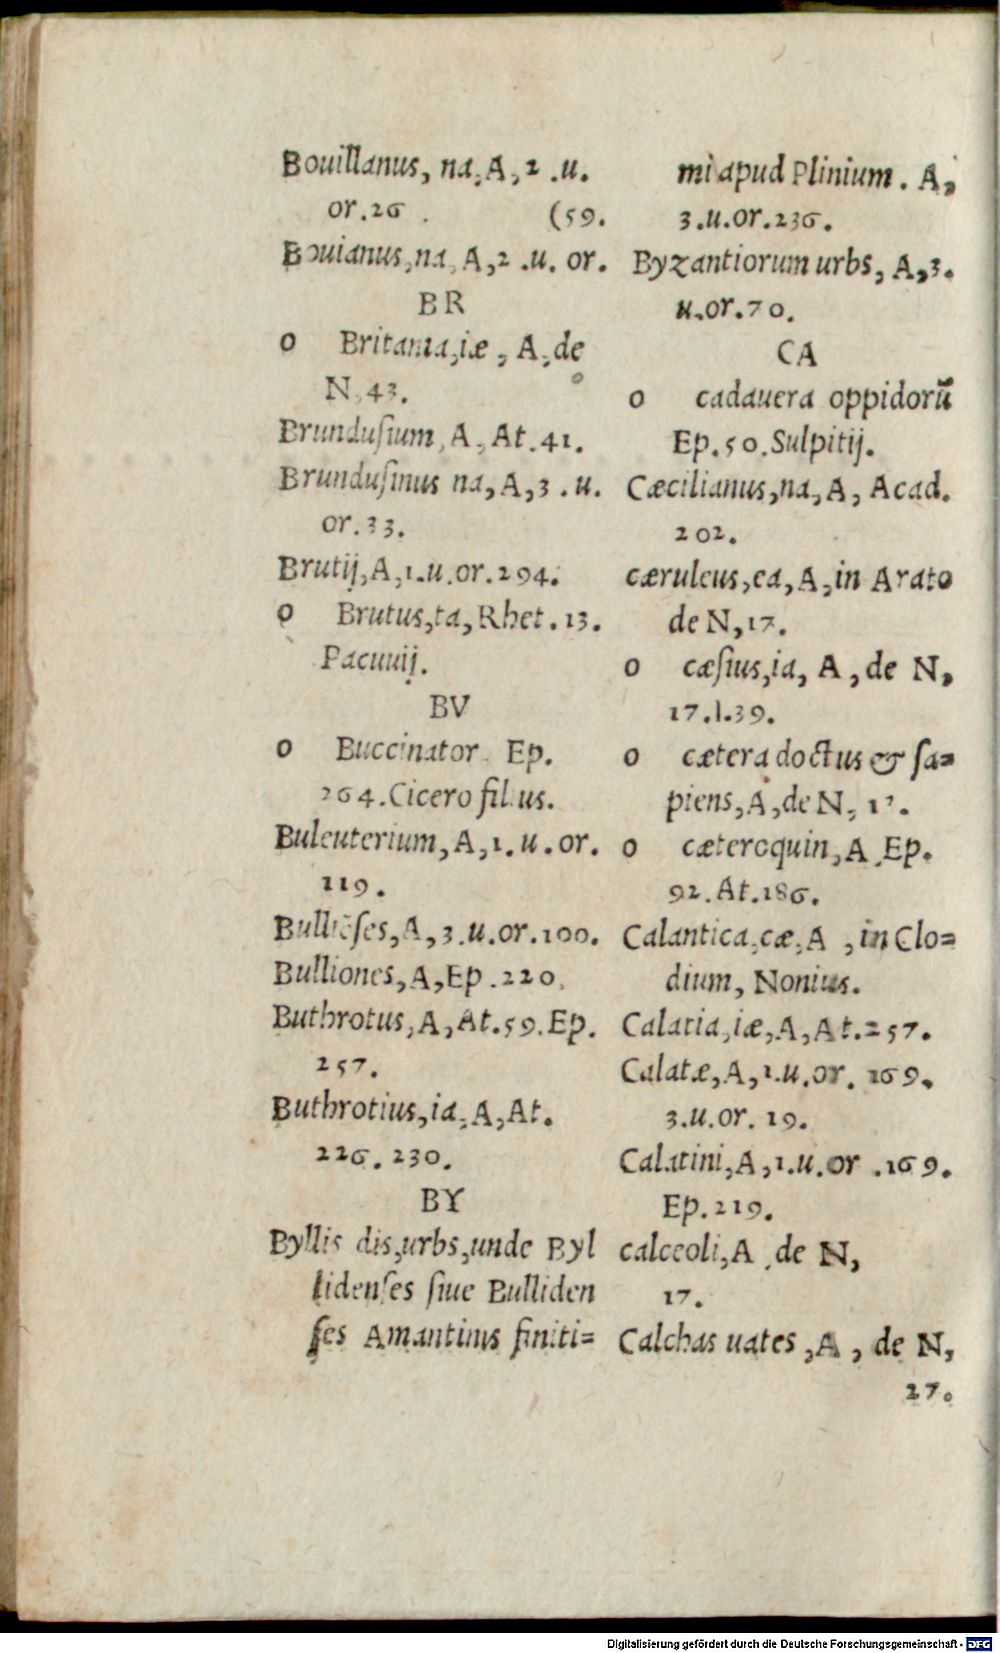 Bouillanus, na, A, 2 .u.
or.26 . (59.
Bouianus, na, A, 2 .u. or.
BR
o Britania, iæ, A, de
N, 43.
Brundusium, A, At. 41.
Brundusinus na, A, 3 . u.
or. 33.
Brutij, A, 1.u.or. 294.
o Brutus, ta, Rhet. 13.
Pacuuij.
BV
o Buccinator Ep.
264. Cicero filius.
Buleuterium, A, 1. u. or.
119.
Bulliẽses, A, 3.u.or.100.
Bulliones, A, Ep. 220.
Buthrotus, A, At. 59. Ep.
257.
Buthrotius, ia, A, At.
226. 230.
BY
Byllis dis, urbs, unde Byl
lidenſes ſiue Bulliden
ſes Amantinis finiti=
mi apud Plinium. A,
3.u.or.236.
Byzantiorum urbs, A, 3.
u.or.70.
CA
o cadauera oppidorũ
Ep. 50. Sulpitij.
Cæcilianus, na, A, Acad.
202.
cæruleus, ea, A, in Arato
de N, 17.
o cæſius, ia, A, de N,
17.l.39.
o cætera doctus & ſa=
piens, A, de N,
o cæteroquin, A, Ep.
92. At. 186.
Calantica, cæ, A, in Clo=
dium, Nonius.
Calatia, iæ, A, At. 257.
Calatæ, A, 1.u.or. 169.
3.u.or. 19.
Calatini, A, 1.u.or .169.
Ep. 219.
calceoli, A, de N,
17.
Calchas uates, A, de N,
27.
Digitalisierung gefördert durch die Deutsche Forschungsgemeinschaft - DFG